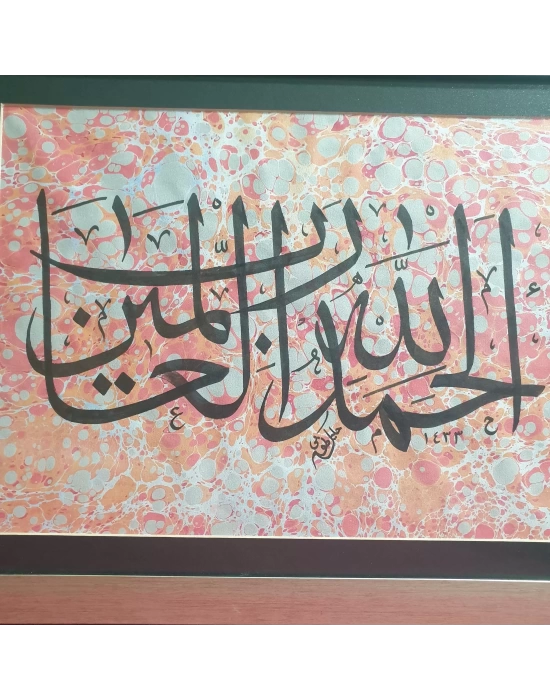 الحمد لله رب العالمين
١٤٣٣